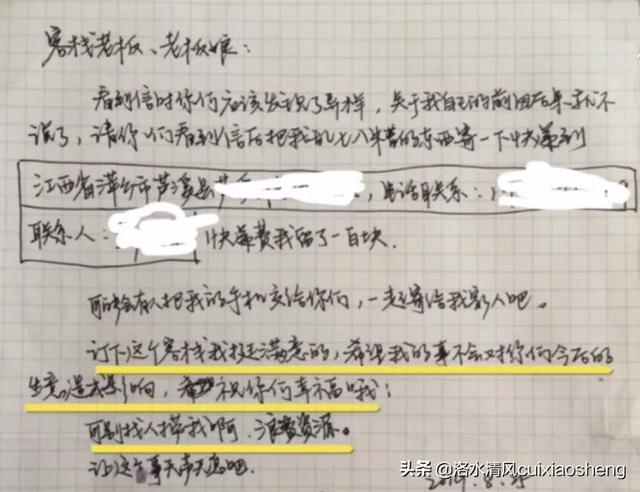 客栈老板、老板娘：
看到信时你们应该发现了异样，关于我自己的前因后果就不
说了，请你们看到信后把我乱七八糟的东西寄一下快递到
江西省萍乡市芦溪县 ，电话联系：
联系人： 快递费我留了一百块.
可能会有人把我的手机交给你们，一起寄给我家人吧。
订下这个客栈我挺满意的，希望我的事不会对你们今后的
生意造成影响， 祝你们幸福哦！
可别找人捞我啊，浪费资源。
让这个事无声无息吧.
2019.8.
头条 @洛水清风cuixiaosheng